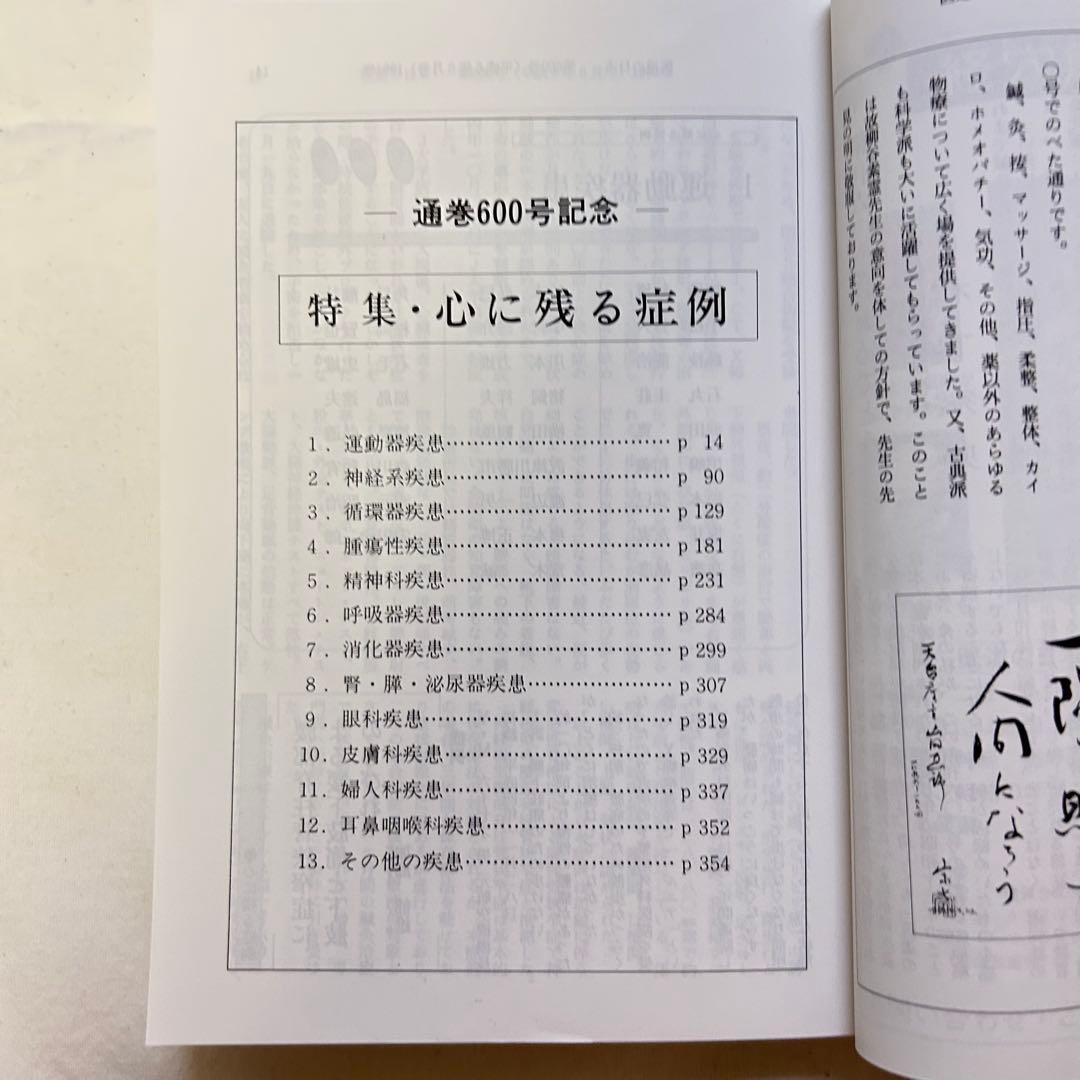 ― 通巻600号記念 ―
特集・心に残る症例
1．運動器疾患……………………………p 14
2．神経系疾患……………………………p 90
3．循環器疾患……………………………p 129
4．腫瘍性疾患……………………………p 181
5．精神科疾患……………………………p 231
6．呼吸器疾患……………………………p 284
7．消化器疾患……………………………p 299
8．腎・膵・泌尿器疾患…………………p 307
9．眼科疾患………………………………p 319
10．皮膚科疾患……………………………p 329
11．婦人科疾患……………………………p 337
12．耳鼻咽喉科疾患………………………p 352
13．その他の疾患…………………………p 354
〇号でのべた通りです。
鍼、灸、按、マッサージ、指圧、柔整、整体、カイ
ロ、ホメオパチー、気功、その他、薬以外のあらゆる
物療について広く場を提供してきました。又、古典派
も科学派も大いに活躍してもらっています。このこと
は故柳谷素霊先生の意向を体しての方針で、先生の先
見の明に敬服しております。
人間になろう